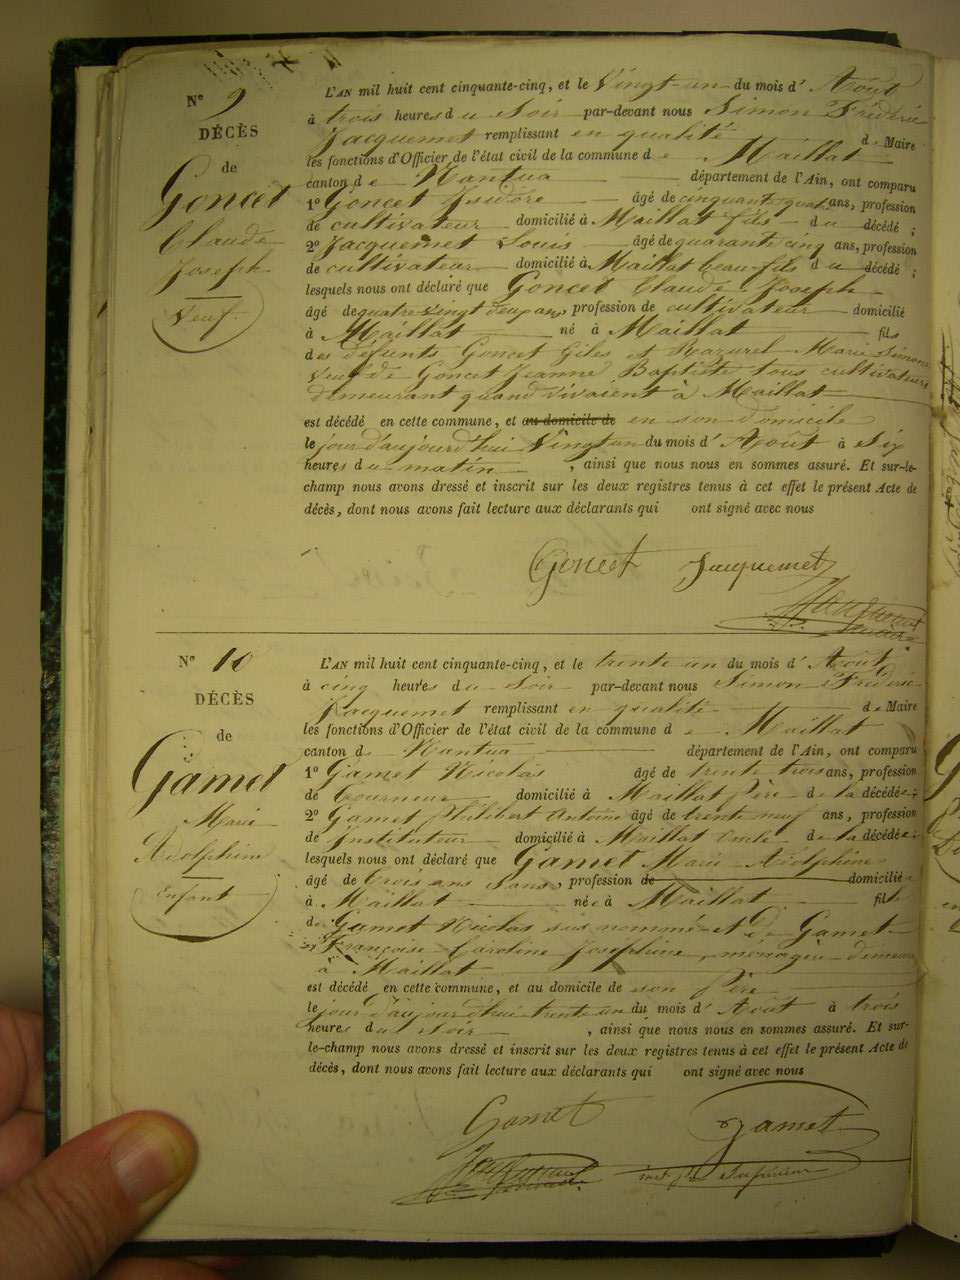 N° 9
DÉCÈS
de
Goncet
Claude
Joseph
Veuf.
L'AN mil huit cent cinquante-cinq, et le Vingt-un du mois d'Août
à trois heures du Soir par-devant nous Simon Fréderic
Jacquemet remplissant en qualité de Maire
les fonctions d'Officier de l'état civil de la commune de Maillat
canton de Nantua département de l'Ain, ont comparu
1° Goncet Isidore âgé de cinquante quat ans, profession
de cultivateur domicilié à Maillat fils du décédé ;
2° Jacquemet Louis âgé de quarante cinq ans, profession
de cultivateur domicilié à Maillat beau-fils du décédé ;
lesquels nous ont déclaré que Goncet Claude Joseph
âgé de quatre vingt deux ans, profession de cultivateur domicilié
à Maillat né à Maillat fils
des défunts Goncet Giles et Marie Simone
Veuf de Goncet Jeanne Baptiste tous cultivateurs
demeurant quand vivaient à Maillat
est décédé en cette commune, et au domicile de en son domicile
le jour d'aujourd'hui Vingt un du mois d'Août à Six
heures du matin , ainsi que nous nous en sommes assuré. Et sur-le-
champ nous avons dressé et inscrit sur les deux registres tenus à cet effet le présent Acte de
décès, dont nous avons fait lecture aux déclarants qui ont signé avec nous
Goncet Jacquemet
Jacquemet
N° 10
DÉCÈS
de
Gamet
Marie
Adolphine
Enfant
L'AN mil huit cent cinquante-cinq, et le trente un du mois d'Août
à cinq heures du Soir par-devant nous Simon Fréderic
Jacquemet remplissant en qualité de Maire
les fonctions d'Officier de l'état civil de la commune de Maillat
canton de Nantua département de l'Ain, ont comparu
1° Gamet Nicolas âgé de trente trois ans, profession
de tourneur domicilié à Maillat Père de la décédée ;
2° Gamet Philibert Antoine âgé de trente neuf ans, profession
de Instituteur domicilié à Maillat Oncle de la décédée ;
lesquels nous ont déclaré que Gamet Marie Adolphine
âgé de trois ans sans, profession de domicilié
à Maillat née à Maillat fille
de Gamet Nicolas sus nommé et de Gamet
Françoise Caroline Josephine, ménagère demeur
à Maillat
est décédé en cette commune, et au domicile de son Père
le jour d'aujourd'hui trente un du mois d'Août à trois
heures du soir , ainsi que nous nous en sommes assuré. Et sur-
le-champ nous avons dressé et inscrit sur les deux registres tenus à cet effet le présent Acte de
décès, dont nous avons fait lecture aux déclarants qui ont signé avec nous
Gamet Gamet
Jacquemet